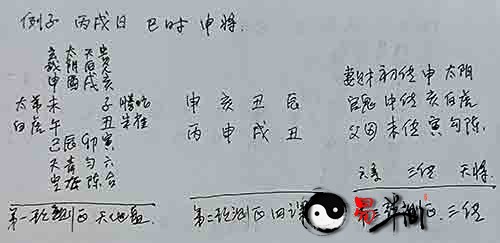 例子 丙戌日 巳时 申将.
玄 太 天 贵
武 阴 后 人
申 酉 戌 亥
太常 未 子 螣蛇
白虎 午 丑 朱雀
巳 辰 卯 寅
天 青 勾 六
空 龙 陈 合
第一 天地盘
申 亥 丑 辰
丙 申 戌 丑
第二 四课
妻财 初传 申 太阴
官鬼 中传 亥 白虎
父母 末传 寅 勾陈
六亲 三传 天将
三传